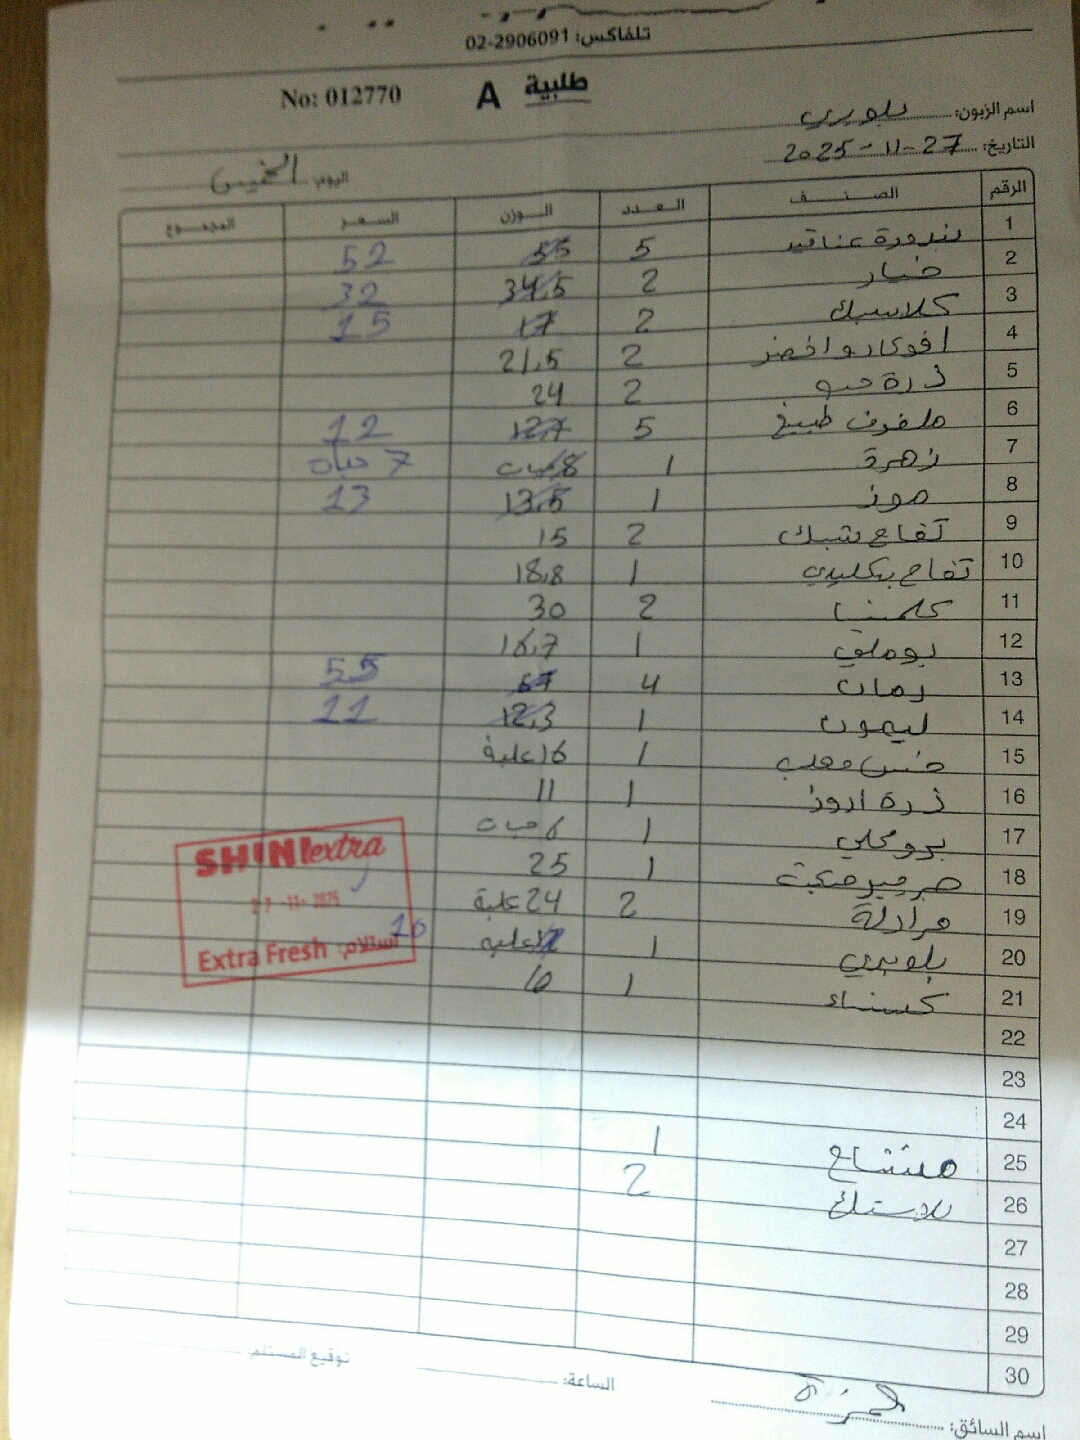 تلفاكس: 02-2906091
طلبية A No: 012770
اسم الزبون:
التاريخ: 27-11-2025
اليوم: الخميس
الرقم الصنف العدد الوزن السعر المجموع
1 بندورة عناقيد 5 55 52
2 خيار 2 34.5 32
3 كلاسيك 2 17 15
4 افوكادو اخضر 2 21.5
5 ذرة حب 2 24
6 ملفوف طبيخ 5 12.7 12
7 زهرة 1 8 حبات 7 حبات
8 موز 1 13.5 13
9 تفاح شبك 2 15
10 تفاح 1 18.8
11 كلمنتينا 2 30
12 بوملي 1 16.7
13 رمان 4 55
14 ليمون 1 12.3 11
15 خس معلب 1 16 علبة
16 ذرة 1 11
17 بروكلي 1 6 حبات
18 1 25
19 2 24 علبة
20 1 علبة 10
21 كستناء 1 10
22
23
24
25 مشتاح 1
26 بلاستيك 2
27
28
29
30
SHINI extra
27-11-2025
Extra Fresh استلام:
اسم السائق: حمزة
الساعة:
توقيع المستلم: